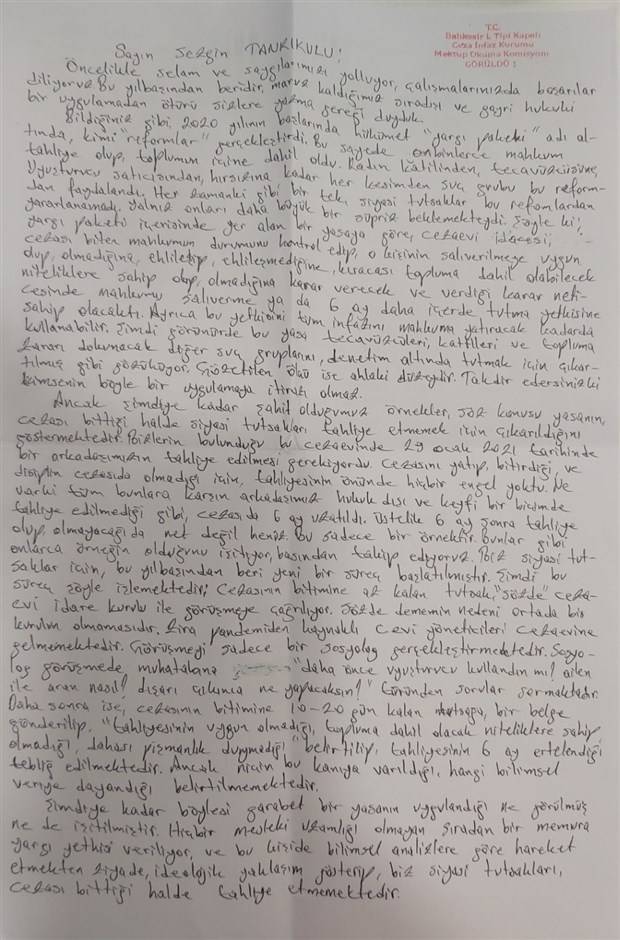 T.C.
Balıkesir L Tipi Kapalı
Ceza İnfaz Kurumu
Mektup Okuma Komisyonu
GÖRÜLDÜ !
Sayın Sezgin TANRIKULU;
Öncelikle selam ve saygılarımızı yolluyor, çalışmalarınızda başarılar
diliyoruz. Bu yılbaşından beridir, maruz kaldığımız sıradışı ve gayri hukuki
bir uygulamadan ötürü sizlere yazma gereği duyduk.
Bildiğiniz gibi, 2020 yılının başlarında hükümet "yargı paketi" adı al-
tında, kimi "reformlar" gerçekleştirdi. Bu sayede onbinlerce mahkum
tahliye olup, toplumun içine dahil oldu. Kadın katilinden, tecavüzcüsüne,
Uyuşturucu satıcısından, hırsızına kadar her kesimden suç grubu bu reform-
dan faydalandı. Her zamanki gibi bir tek, siyasi tutsaklar bu reformlardan
yararlanamadı. Yalnız onları daha büyük bir süpriz beklemekteydi. Şöyle ki;
yargı paketi içerisinde yer alan bir yasaya göre, cezaevi idaresi,
cezası biten mahkumun durumunu kontrol edip, o kişinin salıverilmeye uygun
olup, olmadığına, ehlileşip, ehlileşmediğine, kısacası topluma dahil olabilecek
niteliklere sahip olup, olmadığına karar verecek ve verdiği karar neti-
cesinde mahkumu salıverme ya da 6 ay daha içerde tutma yetkisine
sahip olacaktı. Ayrıca bu yetkisini tüm infazını mahkuma yatıracak kadarda
kullanabilir. Şimdi görünürde bu yasa tecavüzcüleri, katilleri ve topluma
zararı dokunacak diğer suç gruplarını, denetim altında tutmak için çıkar-
tılmış gibi gözüküyor. Gözetilen ölçü ise ahlaki düzeydir. Takdir edersinizki
kimsenin böyle bir uygulamaya itirazı olmaz.
Ancak şimdiye kadar şahit olduğumuz örnekler, söz konusu yasanın,
cezası bittiği halde siyasi tutsakları tahliye etmemek için çıkarıldığını
göstermektedir. Bizlerin bulunduğu bu cezaevinde 29 ocak 2021 tarihinde
bir arkadaşımızın tahliye edilmesi gerekiyordu. Cezasını yatıp, bitirdiği, ve
disiplin cezasıda olmadığı için, tahliyesinin önünde hiçbir engel yoktu. Ne
varki tüm bunlara karşın arkadaşımız hukuk dışı ve keyfi bir biçimde
tahliye edilmediği gibi, cezasıda 6 ay uzatıldı. Üstelik 6 ay sonra tahliye
olup, olmayacağıda net değil henüz. Bu sadece bir örnektir. Bunlar gibi
onlarca örneğin olduğunu işitiyor, basından takip ediyoruz. Biz siyasi tut-
saklar için, bu yılbaşından beri yeni bir süreç başlatılmıştır. Şimdi bu
süreç şöyle işlemektedir; Cezasının bitimine az kalan tutsak, "sözde" ceza-
evi idare kurulu ile görüşmeye çağrılıyor. Sözde dememin nedeni ortada bir
kurulun olmamasıdır. Zira pandemiden kaynaklı C.evi yöneticileri cezaevine
gelmemektedir. Görüşmeyi sadece bir sosyolog gerçekleştirmektedir. Sosyo-
log görüşmede muhatabına "daha önce uyuşturucu kullandın mı? ailen
ile aran nasıl? dışarı çıkınca ne yapacaksın?" türünden sorular sormaktadır.
Daha sonra ise, cezasının bitimine 10-20 gün kalan tutsağa, bir belge
gönderilip, "tahliyesinin uygun olmadığı, topluma dahil olacak niteliklere sahip
olmadığı, dahası pişmanlık duymadığı" belirtilip, tahliyesinin 6 ay ertelendiği
tebliğ edilmektedir. Ancak niçin bu kanıya varıldığı, hangi bilimsel
veriye dayandığı belirtilmemektedir.
Şimdiye kadar böylesi garabet bir yasanın uygulandığı ne görülmüş
ne de işitilmiştir. Hiçbir mesleki uzmanlığı olmayan sıradan bir memura
yargı yetkisi veriliyor, ve bu kişide bilimsel analizlere göre hareket
etmekten ziyade, ideolojik yaklaşım gösterip, biz siyasi tutsakları,
cezası bittiği halde tahliye etmemektedir.